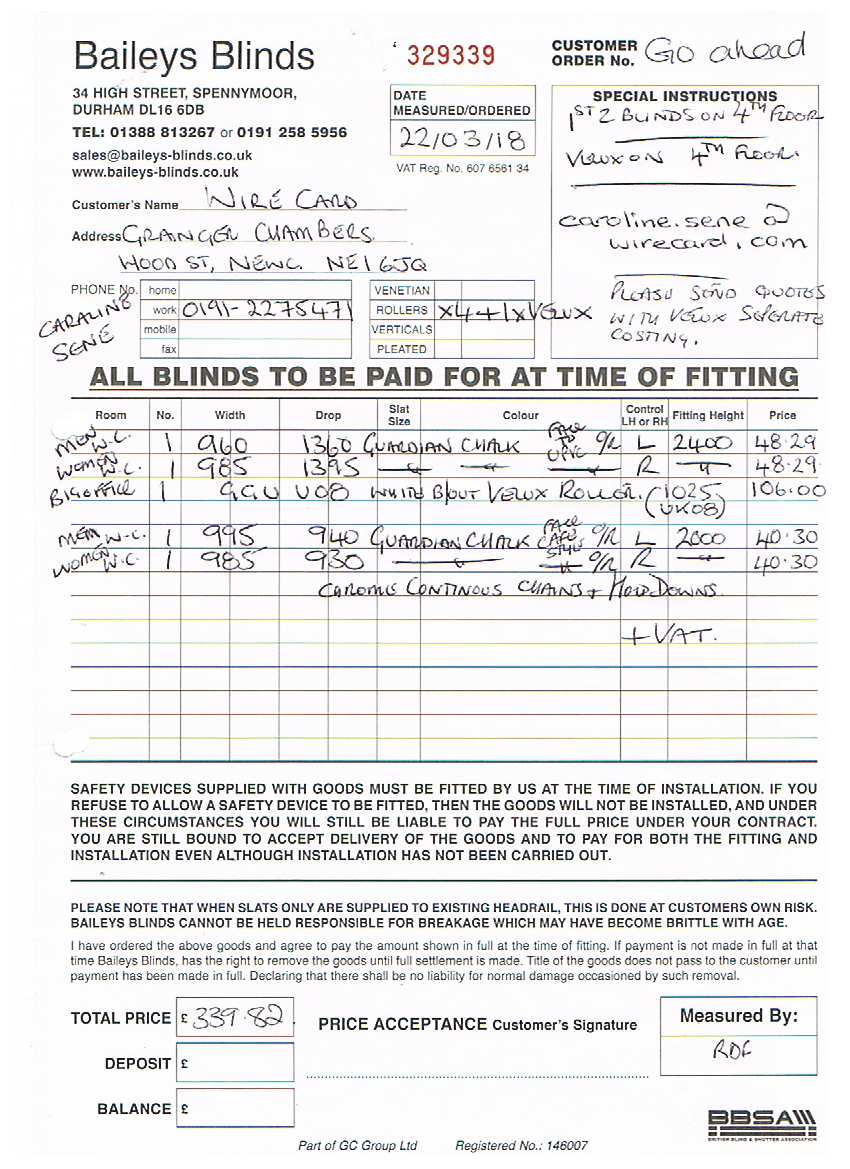 Baileys Blinds
329339
CUSTOMER ORDER No. Go ahead
34 HIGH STREET, SPENNYMOOR,
DURHAM DL16 6DB
TEL: 01388 813267 or 0191 258 5956
sales@baileys-blinds.co.uk
www.baileys-blinds.co.uk
DATE
MEASURED/ORDERED
22/03/18
VAT Reg. No. 607 6561 34
SPECIAL INSTRUCTIONS
1ST 2 BLINDS ON 4TH FLOOR
VELUX ON 4TH FLOOR.
caroline.sene@
wirecard.com
PLEASE SEND QUOTES
WITH VELUX SEPERATE
COSTING.
Customer's Name WIRE CARD
Address GRANGER CHAMBERS
HOOD ST, NEWC. NE1 6JQ
PHONE No. home
CARALINE SENE
work 0191-2275471
mobile
fax
VENETIAN
ROLLERS x4 + 1x VELUX
VERTICALS
PLEATED
ALL BLINDS TO BE PAID FOR AT TIME OF FITTING
Room No. Width Drop Slat Size Colour Control LH or RH Fitting Height Price
MEN W.C. 1 960 1360 GUARDIAN CHALK FACE TO UPVC O/R L 2400 48.29
WOMEN W.C. 1 985 1395 " " " R " 48.29
BIG OFFICE 1 GGU U08 WHITE B/OUT VELUX ROLLER. (1025 106.00
(UK08)
MEN W.C. 1 995 940 GUARDIAN CHALK FACE CAFE STYLE O/R L 2000 40.30
WOMEN W.C. 1 985 930 " " O/R R " 40.30
CAROMIE CONTINOUS CHAINS + HOLD DOWNS
+ VAT.
SAFETY DEVICES SUPPLIED WITH GOODS MUST BE FITTED BY US AT THE TIME OF INSTALLATION. IF YOU
REFUSE TO ALLOW A SAFETY DEVICE TO BE FITTED, THEN THE GOODS WILL NOT BE INSTALLED, AND UNDER
THESE CIRCUMSTANCES YOU WILL STILL BE LIABLE TO PAY THE FULL PRICE UNDER YOUR CONTRACT.
YOU ARE STILL BOUND TO ACCEPT DELIVERY OF THE GOODS AND TO PAY FOR BOTH THE FITTING AND
INSTALLATION EVEN ALTHOUGH INSTALLATION HAS NOT BEEN CARRIED OUT.
PLEASE NOTE THAT WHEN SLATS ONLY ARE SUPPLIED TO EXISTING HEADRAIL, THIS IS DONE AT CUSTOMERS OWN RISK.
BAILEYS BLINDS CANNOT BE HELD RESPONSIBLE FOR BREAKAGE WHICH MAY HAVE BECOME BRITTLE WITH AGE.
I have ordered the above goods and agree to pay the amount shown in full at the time of fitting. If payment is not made in full at that
time Baileys Blinds, has the right to remove the goods until full settlement is made. Title of the goods does not pass to the customer until
payment has been made in full. Declaring that there shall be no liability for normal damage occasioned by such removal.
TOTAL PRICE £ 339.82
PRICE ACCEPTANCE Customer's Signature
Measured By:
DEPOSIT £
BALANCE £
BBSA
BRITISH BLIND & SHUTTER ASSOCIATION
Part of GC Group Ltd Registered No.: 146007